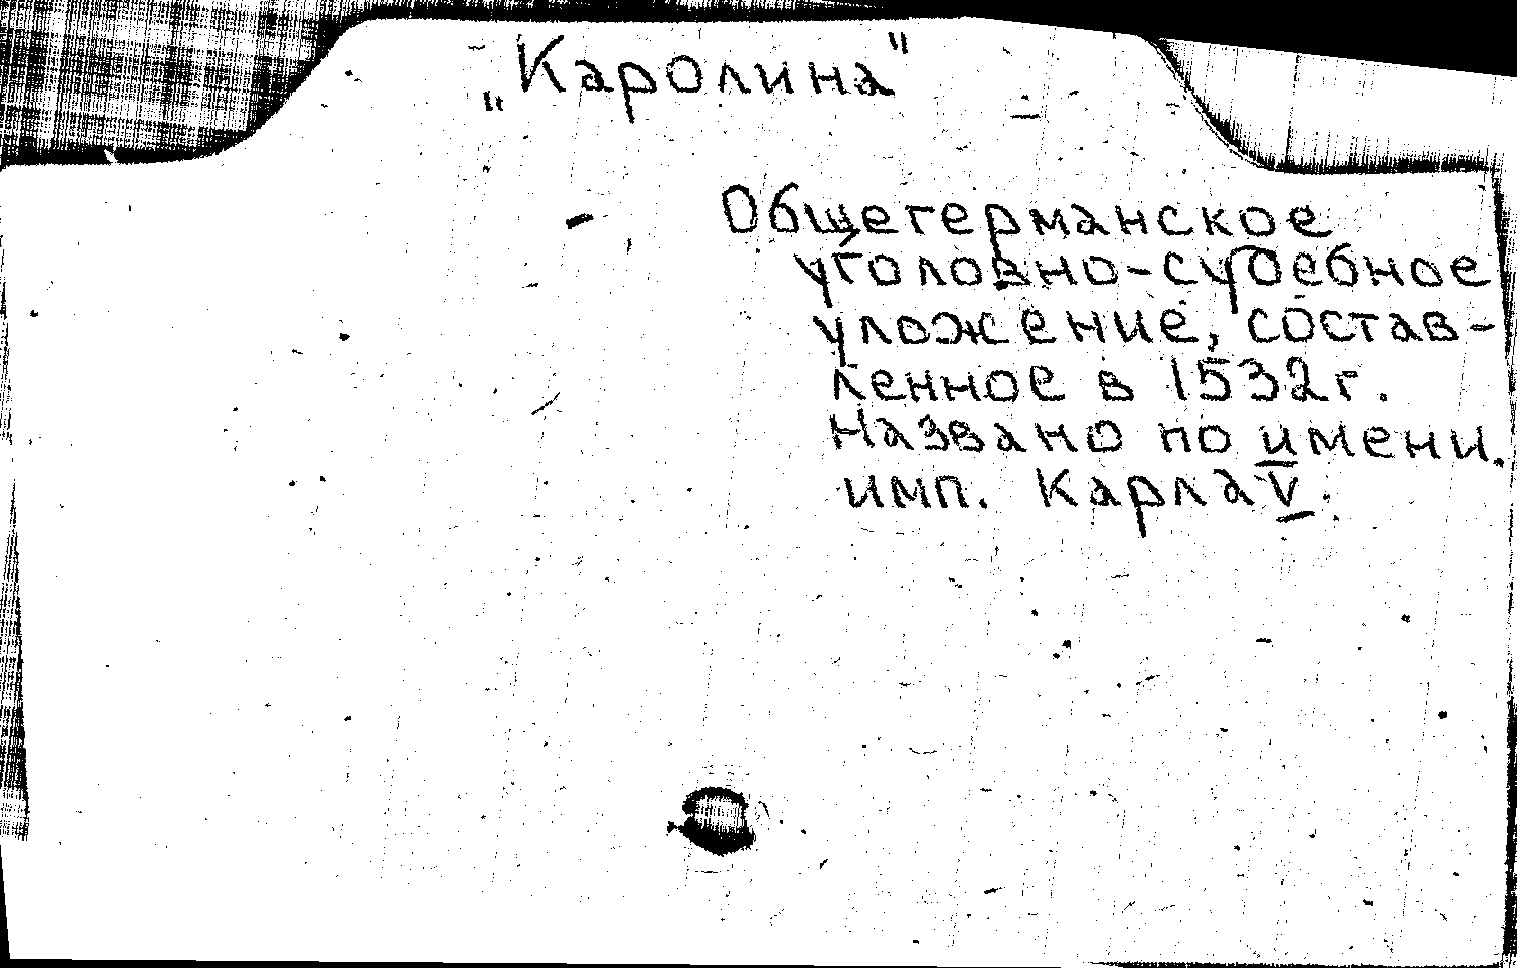 „Каролина"
Общегерманское
уголовно-судебное
уложение, состав-
ленное в 1532г.
Названо по имени
имп. Карла V.